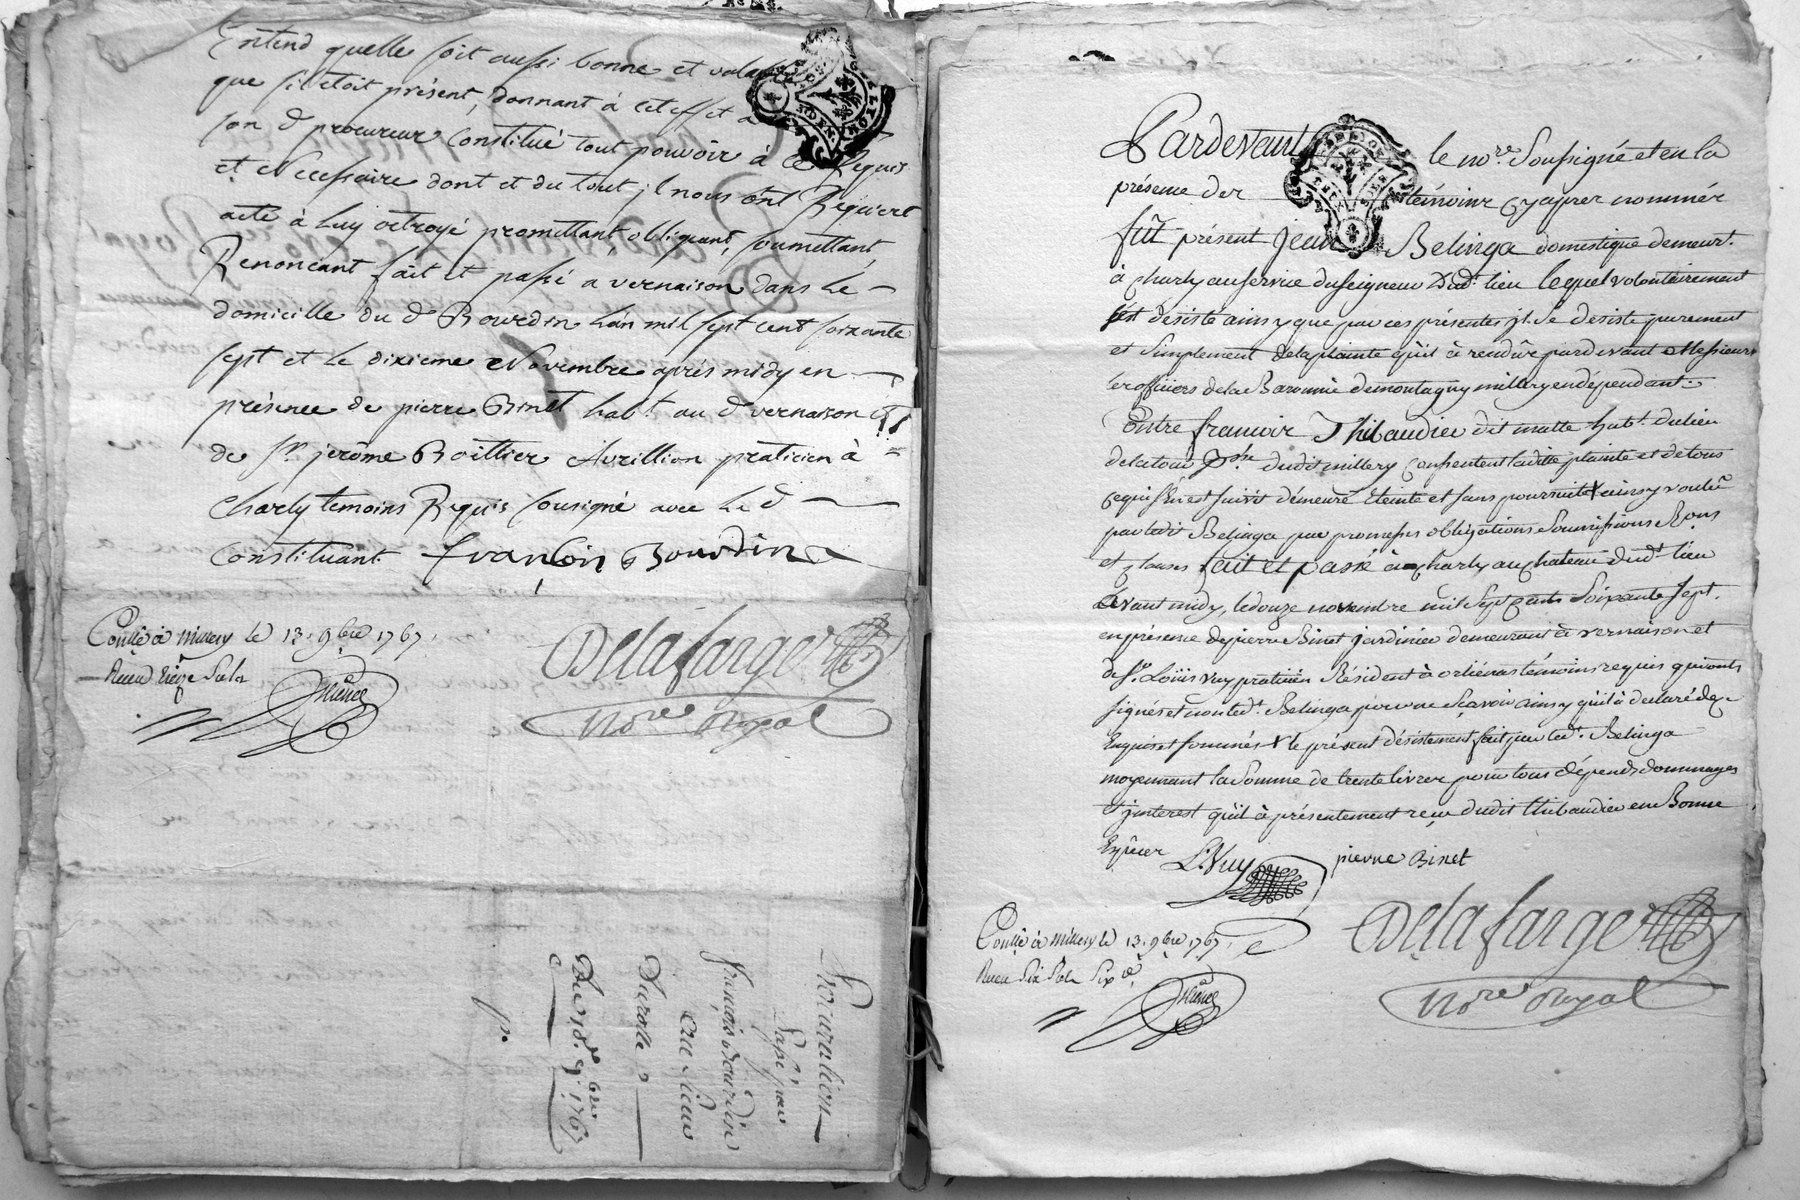 Entend quelle soit aussi bonne et valable
que s'il étoit présent, donnant à cet effet a
son d procureur Constitué tout pouvoir à Requis
et Necessaire dont et du tout jl nous ont Requiert
acte à luy octroyé promettant, obligeant, soumettant,
Renonceant fait et passé a vernaison dans le
domicille du d Bourdin lán mil sept cent soixante
sept et le dixieme Novembre aprés midy en
présence de pierre Binet habt. au d vernaison et
de Sr. jerôme Boittier Avrillion praticien à
Charly temoins Requis sousigné avec le d
Constituant. françois Bourdin
Conllé à millery le 13. 9bre 1767.
Receu treize sols
Delafarge
Nore Royal
Procuration
Passé par
françois Bourdin
au sieur
Durolle
Du 10. 9bre 1767
Pardevant le nore. Soussigné et en la
présence des témoins cy aprer nommér
fût présent Jean Belinga domestique demeurt.
à Charly au service du seigneur Dudt. lieu lequel volontairement
s'est désisté ainsy que par ces présentes jl. Se désiste purement
et Simplement de la plainte qu'il à rendûe pardevant Messieurs
les officiers de la Baronnie de montagny millery en dépendant
Contre francoir Thibaudier dit matte habt. du lieu
de la tour psse. dudit millery Consentent ladite plainte et de tous
ce qui s'en est suivit démeure éteinte et sans poursuitte ainsy voulû
par ledit Belinga par promesses obligations Soumissions Rons
et Clauses fait et passé à Charly au chateau dudt. lieu
avant midy, le douze novembre mil Sept cents Soixante sept.
en présence de pierre Binet jardinier demeurant à vernaison et
de Sr. Loüis vuy praticien Résident à orlienas témoins requis qui ont
signés et non ledt. Belinga pour ne Sçavoir ainsy qu'il à declaré de ce
Enquis et sommés le présent désistement fait par ledt. Belinga
moyennant la Somme de trente livres pour tous dépends dommages
et jnterest qu'il à présentement reçu dudit thibaudier en Bonne
Espêces L. Vuy pierre Binet
Conllé à millery le 13. 9bre 1767.
Receu Six Sols Six
Delafarge
Nore Royal